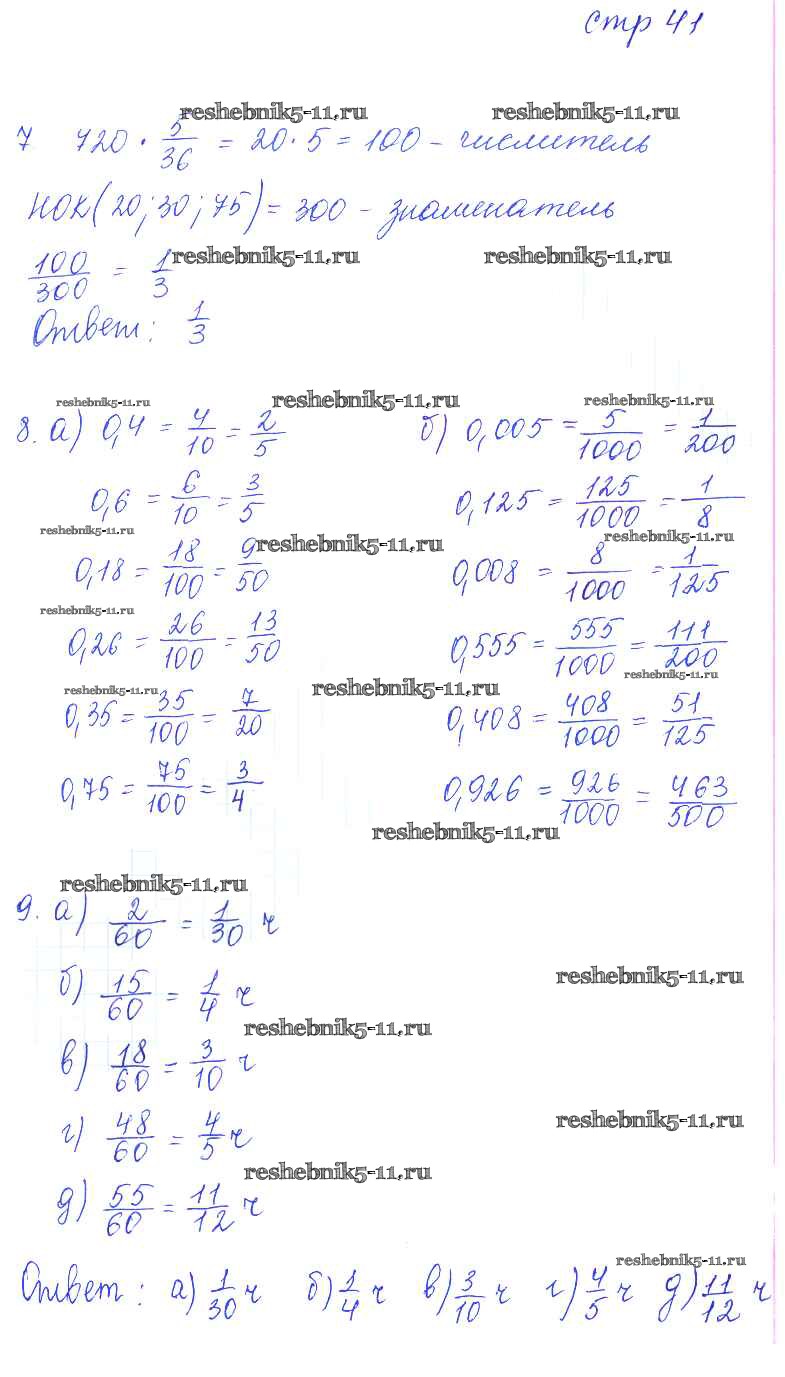 стр 41
reshebnik5-11.ru reshebnik5-11.ru
7 720 · 5/36 = 20 · 5 = 100 – числитель
НОК(20; 30; 75) = 300 – знаменатель
reshebnik5-11.ru reshebnik5-11.ru
100/300 = 1/3
Ответ: 1/3
reshebnik5-11.ru reshebnik5-11.ru reshebnik5-11.ru
8. а) 0,4 = 4/10 = 2/5 б) 0,005 = 5/1000 = 1/200
0,6 = 6/10 = 3/5 0,125 = 125/1000 = 1/8
reshebnik5-11.ru reshebnik5-11.ru reshebnik5-11.ru
0,18 = 18/100 = 9/50 0,008 = 8/1000 = 1/125
reshebnik5-11.ru
0,26 = 26/100 = 13/50 0,555 = 555/1000 = 111/200
reshebnik5-11.ru reshebnik5-11.ru reshebnik5-11.ru
0,35 = 35/100 = 7/20 0,408 = 408/1000 = 51/125
0,75 = 75/100 = 3/4 0,926 = 926/1000 = 463/500
reshebnik5-11.ru
reshebnik5-11.ru
9. а) 2/60 = 1/30 ч
reshebnik5-11.ru
б) 15/60 = 1/4 ч
reshebnik5-11.ru
в) 18/60 = 3/10 ч
reshebnik5-11.ru
г) 48/60 = 4/5 ч
reshebnik5-11.ru
д) 55/60 = 11/12 ч
reshebnik5-11.ru
Ответ: а) 1/30 ч б) 1/4 ч в) 3/10 ч г) 4/5 ч д) 11/12 ч